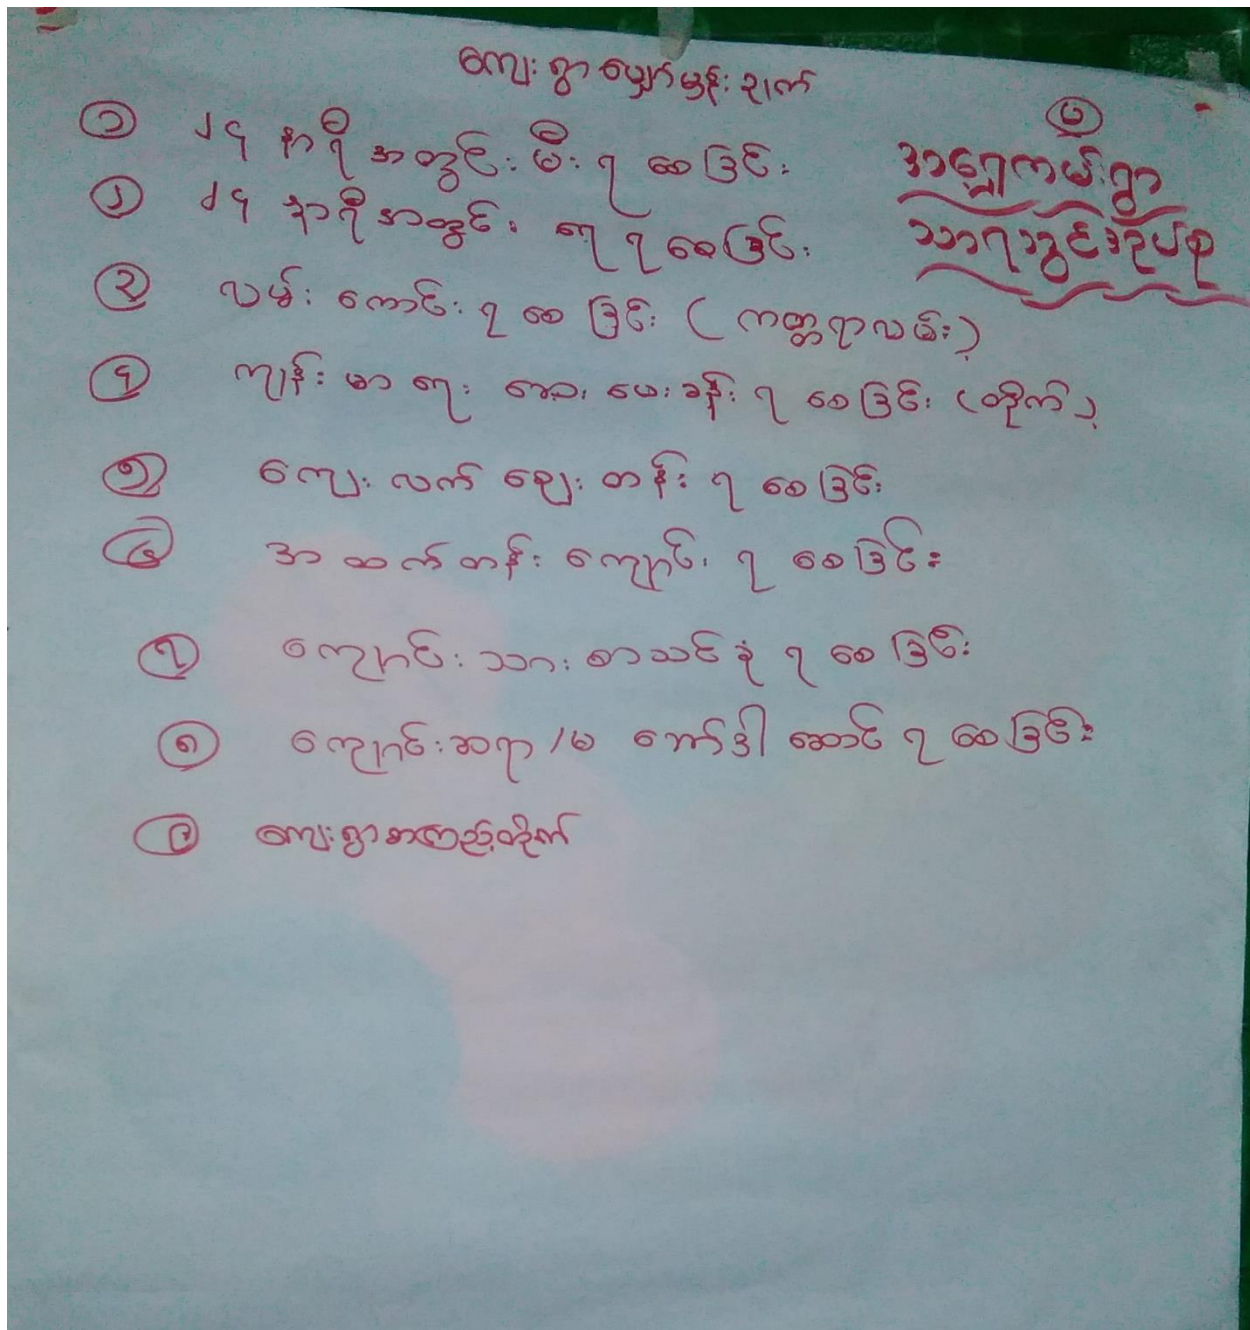 ကျေးရွာမျှော်မှန်းချက်
၁ ၂၄ နာရီအတွင်း မီးရစေခြင်း
၂ ၂၄ နာရီအတွင်း ရေရစေခြင်း
၃ လမ်းကောင်းရစေခြင်း (ကတ္တရာလမ်း)
၄ ကျန်းမာရေး ဆေးပေးခန်းရစေခြင်း (တိုက်)
၅ ကျေးလက်ဈေးတန်းရစေခြင်း
၆ အထက်တန်းကျောင်း ရစေခြင်း
၇ ကျောင်းသားစာသင်ခုံ ရစေခြင်း
၈ ကျောင်းဆရာ/မ ဘော်ဒါဆောင် ရစေခြင်း
၉ ကျေးရွာစာကြည့်တိုက်
အရှေ့ကမ်းရွာ